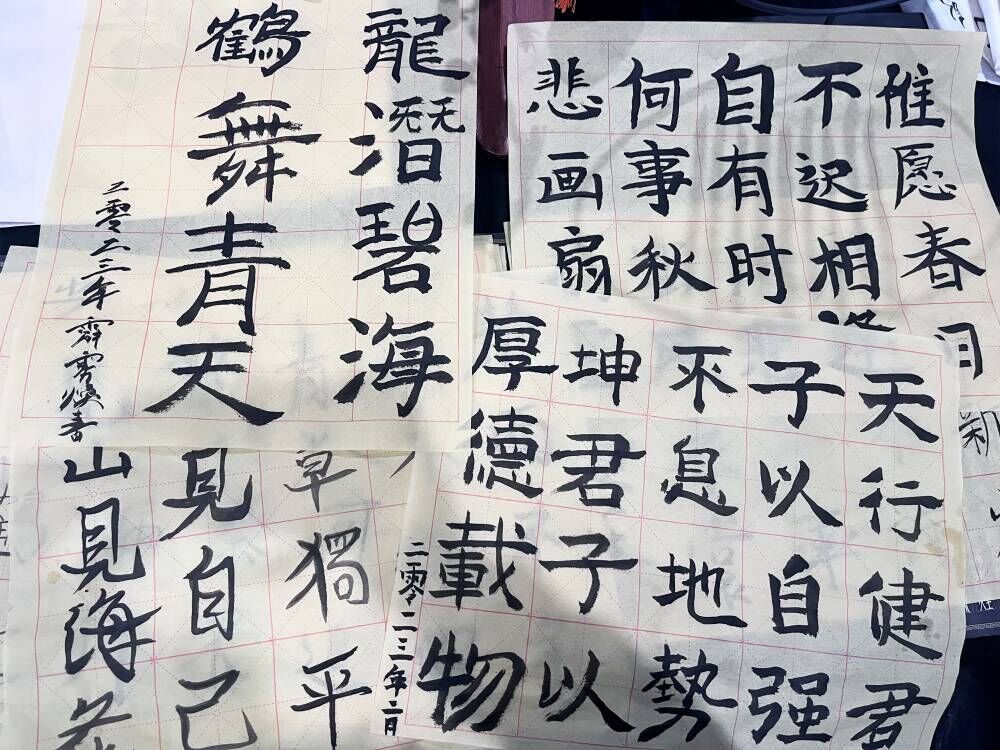 龍潛碧海
鶴舞青天
二零二三年
惟愿春日
不迟相
自有时
何事秋
悲画扇
天行健君
子以自强
不息地勢
坤君子以
厚德載物
二零二三年二月
草獨平
見自己
山見海